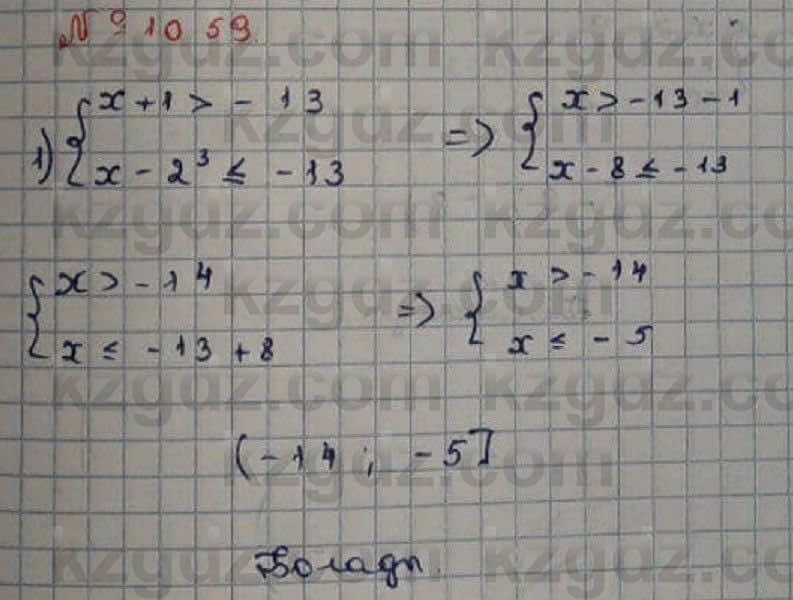 № 1059.
1) { x + 1 > - 13 => { x > - 13 - 1
x - 2³ ≤ - 13 x - 8 ≤ - 13
{ x > - 14 => { x > - 14
x ≤ - 13 + 8 x ≤ - 5
( - 14 ; - 5 ]
Болады.
kzgdz.com